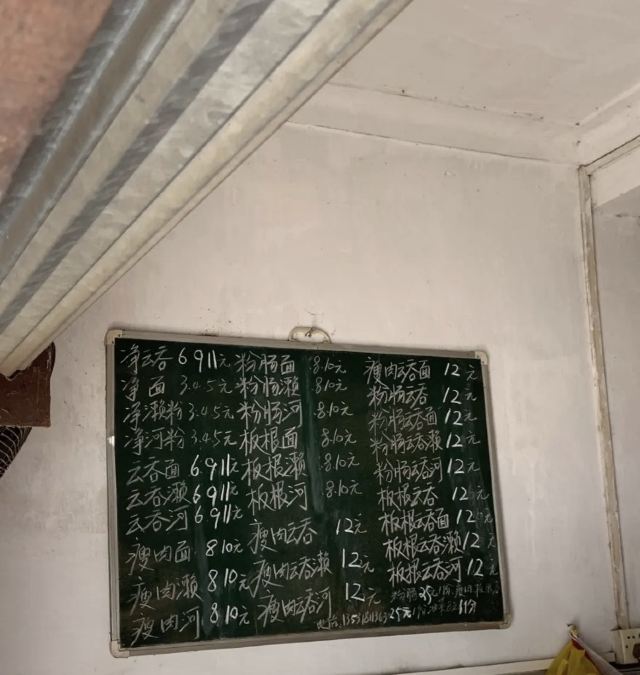 净云吞 6 9 11元
净面 3.4.5元
净濑粉 3.4.5元
净河粉 3.4.5元
云吞面 6 9 11元
云吞濑 6 9 11元
云吞河 6 9 11元
瘦肉面 8 10元
瘦肉濑 8 10元
瘦肉河 8 10元
粉肠面 8.10元
粉肠濑 8.10元
粉肠河 8.10元
板根面 8.10元
板根濑 8.10元
板根河 8.10元
瘦肉云吞 12元
瘦肉云吞濑 12元
瘦肉云吞河 12元
瘦肉云吞面 12元
粉肠云吞 12元
粉肠云吞面 12元
粉肠云吞濑 12元
粉肠云吞河 12元
板根云吞 12元
板根云吞面 12元
板根云吞濑 12元
板根云吞河 12元
粉肠 25元
25元